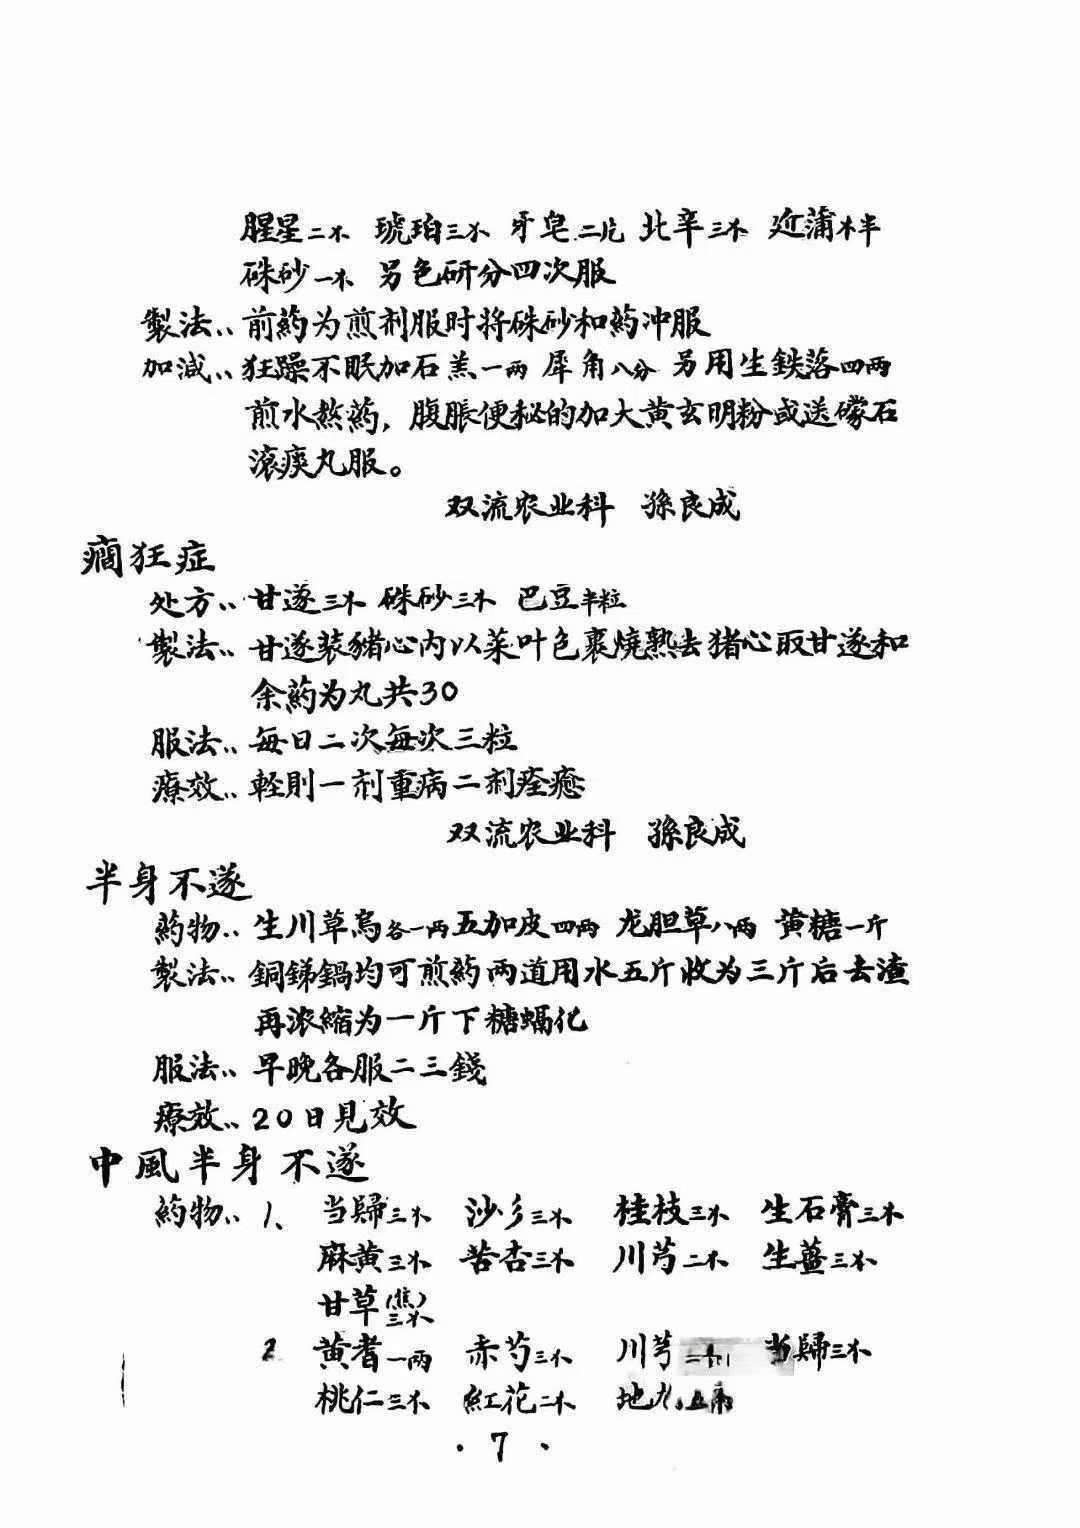 腥星二不 琥珀三不 牙皂二片 北辛三不 近蒲木半
硃砂一不 另包研分四次服
製法:前葯为煎剂服时将硃砂和葯冲服
加减:狂躁不眠加石羔一两 犀角八分 另用生鉄落四两
煎水熬葯,腹脹便秘的加大黄玄明粉或送礞石
滚痰丸服。
双流农业科 孫良成
癎狂症
处方:甘遂三不 硃砂三不 巴豆半粒
製法:甘遂装豬心内以菜叶包裹燒熟去猪心取甘遂和
余葯为丸共30
服法:每日二次每次三粒
療效:軽則一剂重病二剂痊癒
双流农业科 孫良成
半身不遂
葯物:生川草烏各一两五加皮四两 龙胆草八两 黄糖一斤
製法:銅銻鍋均可煎葯两道用水五斤收为三斤后去渣
再浓缩为一斤下糖熔化
服法:早晚各服二三錢
療效:20日見效
中風半身不遂
葯物:1、 当歸三不 沙彡三不 桂枝三不 生石膏三不
麻黄三不 苦杏三不 川芎二不 生薑三不
甘草(焦)三不
2 黄耆一两 赤芍三不 川芎 当歸三不
桃仁三不 紅花二不 地
·7·